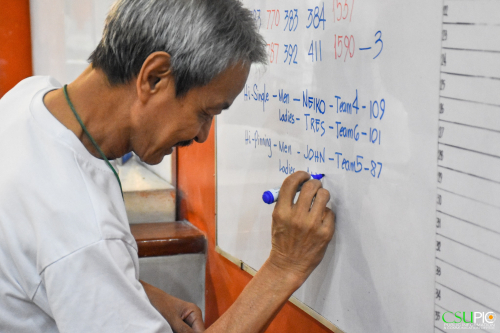 770 383 384 1537
387 392 411 1590 - 3
Hi-Single - Men - NEIKO - Team 4 - 109
Ladies - TRES - Team 6 - 101
Hi-Pinning - Men - JOHN - Team 5 - 87
Ladies
CSUPIO